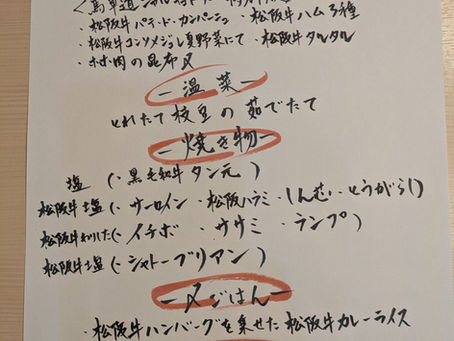 ・松阪牛パテ・ド・カンパーニュ ・松阪牛ハム3種
・松阪牛コンソメジュレ夏野菜にて ・松阪牛タルタル
肉の昆布〆
－温菜－
とれたて枝豆の茹でたて
－焼き物－
塩 (・黒毛和牛タン元)
松阪牛塩 (・サーロイン ・松阪ハラミ ・しんしん ・とうがらし)
松阪牛わりした (・イチボ ・ササミ ・ランプ)
松阪牛塩 (・シャトーブリアン)
－〆ごはん－
・松阪牛ハンバーグを乗せた松阪牛カレーライス